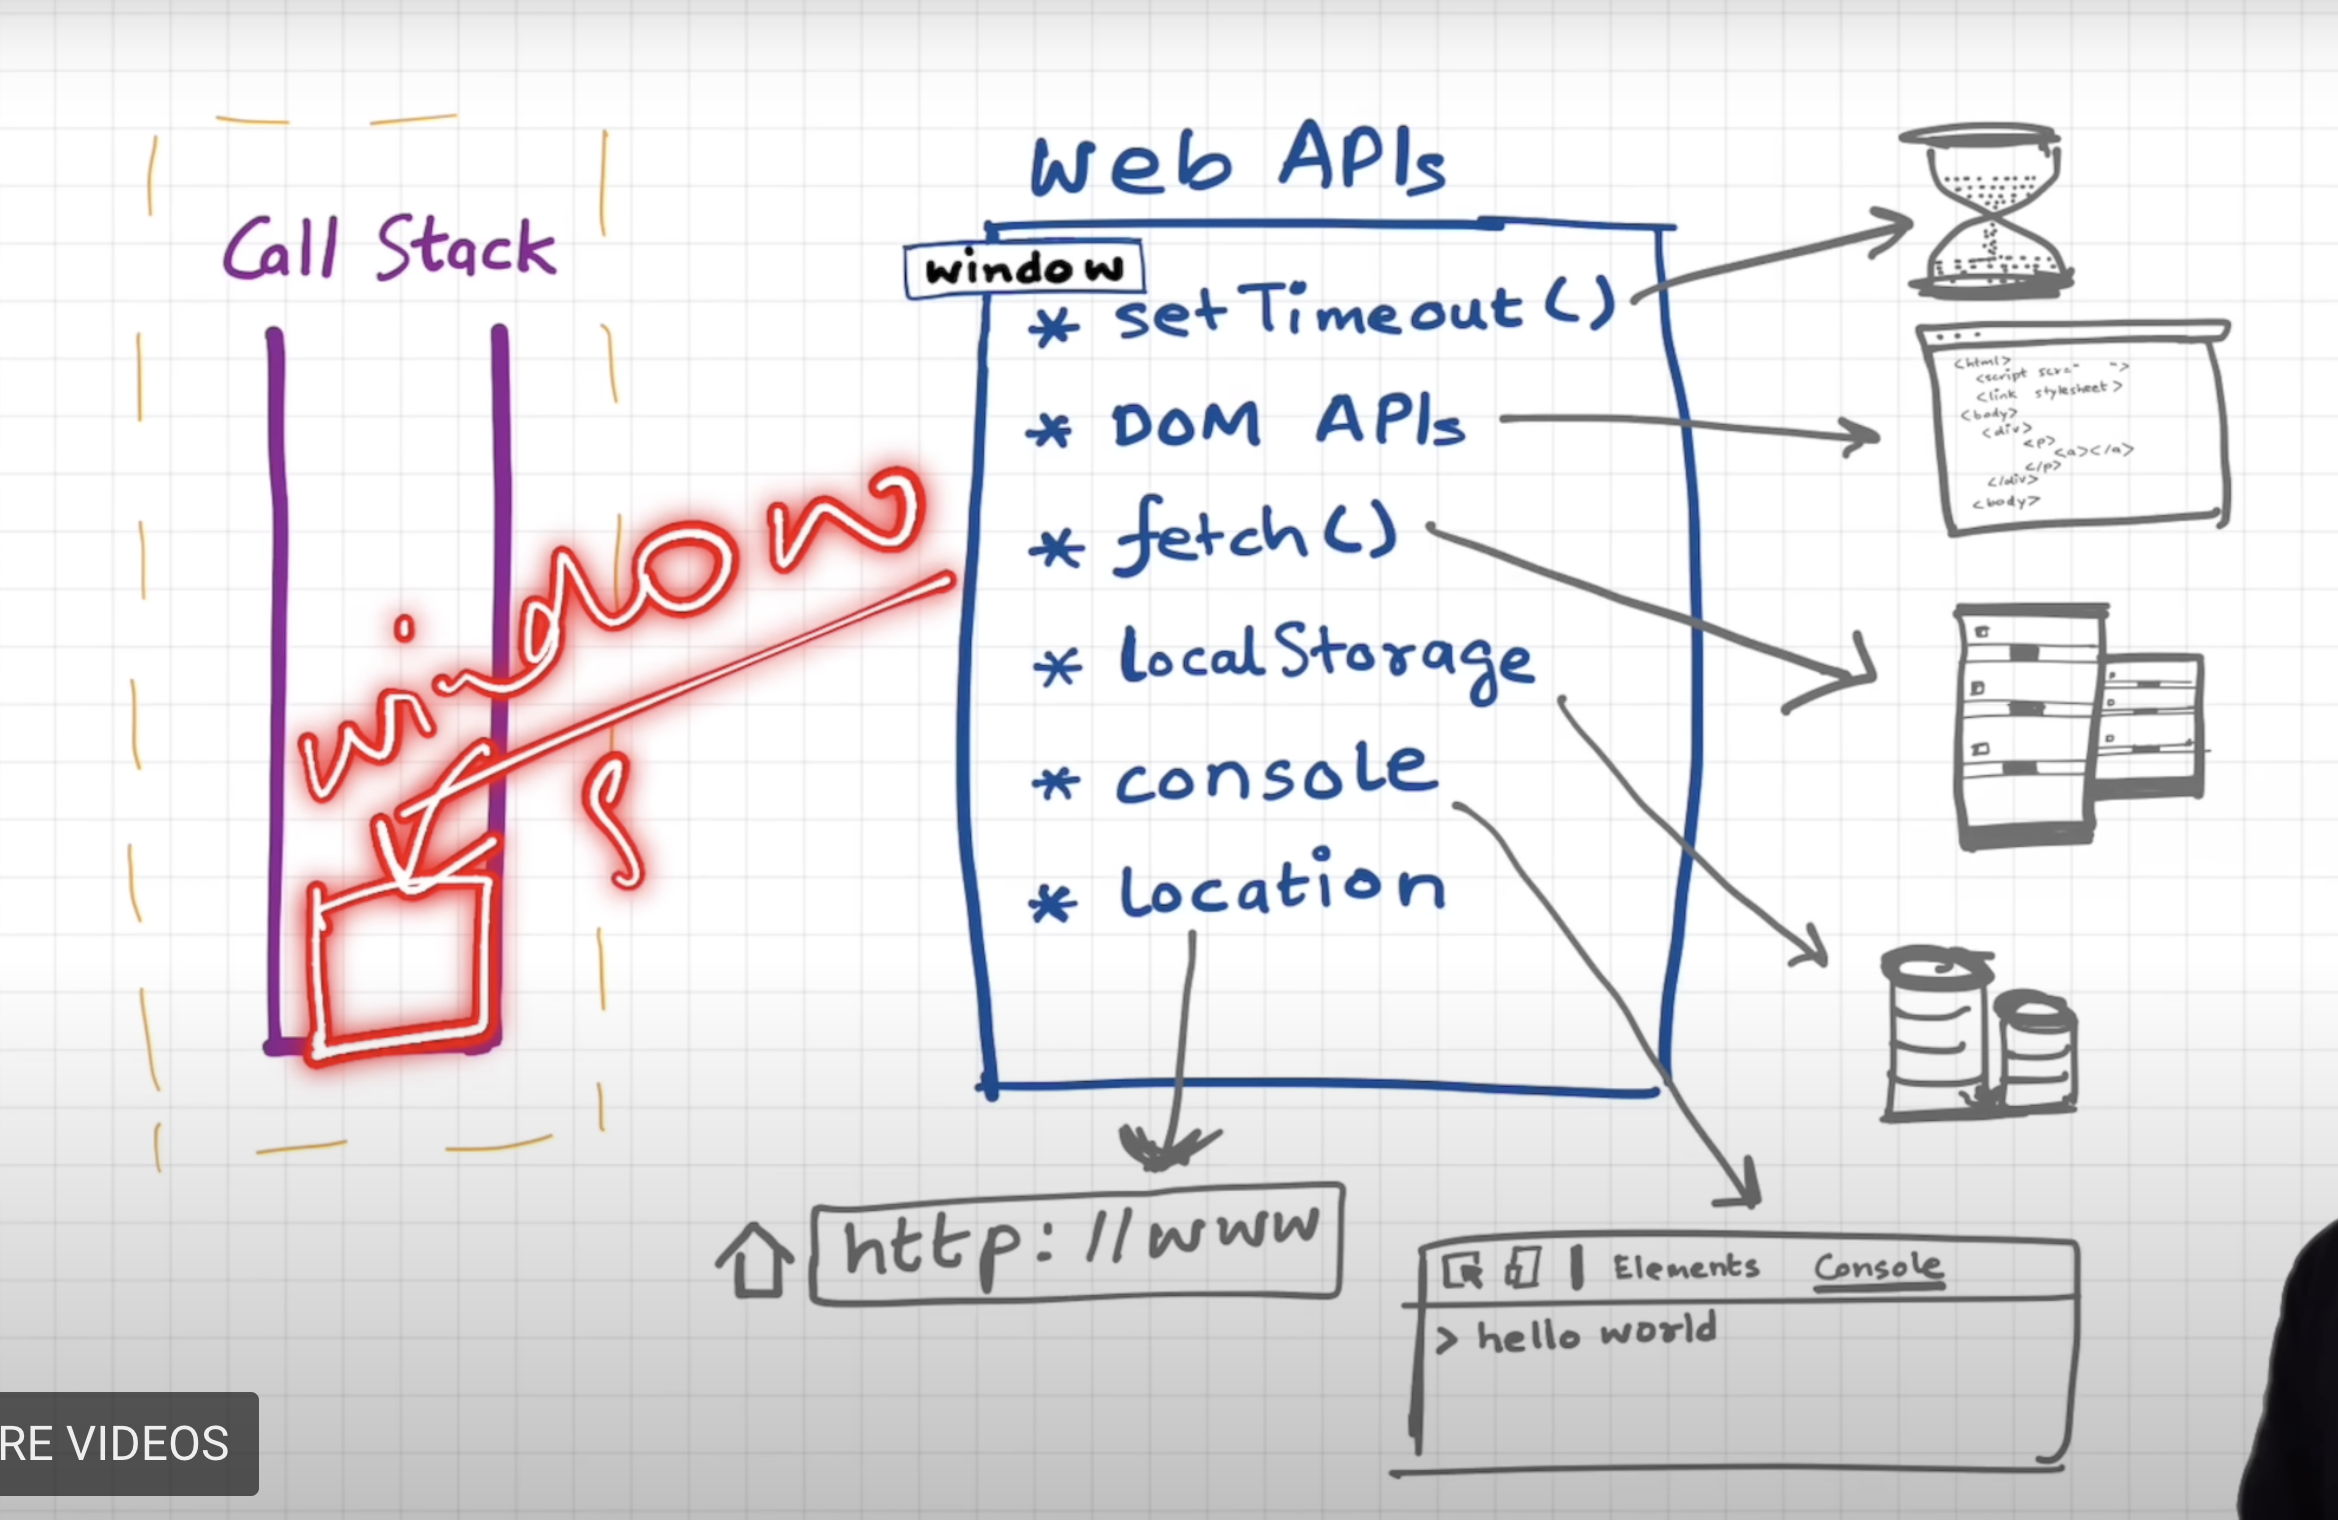 Call Stack
window
Web APIs
window
* setTimeout()
* DOM APIs
* fetch()
* localStorage
* console
* location
<html>
<link stylesheet>
<body>
<div>
<p>
<a></a>
</p>
</div>
<body>
http://www
Elements Console
> hello world
RE VIDEOS